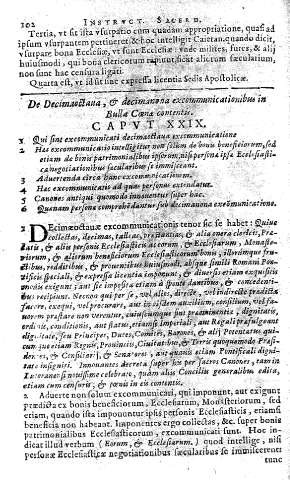 102 INSTRVCT. SACERD.
Tertia, vt sit ista vsurpatio cum quadam appropriatione, quasi ad
ipsum vsurpantem pertineret: & hoc intelligit Caietan. quando dicit,
vsurpare bona Ecclesiæ, vt sunt Ecclesiæ: vnde milites, fures, & alij
huiusmodi, qui bona clericorum rapiunt, sicut alicuius sæcularium,
non sunt hac censura ligati.
Quarta est, vt id sit sine expressa licentia Sedis Apostolicæ.
De Decimaoctaua, & decimanona excommunicationibus in
Bulla Cœnæ contentis.
CAPVT XXIX.
1 Qui sint excommunicati decimaoctaua excommunicatione
2 Hac excommunicatio intelligitur non solum de bonis beneficiorum, sed
etiam de binis patrimonialibus ipsorum, nisi persona ipsa Ecclesiasti-
ca negotiationibus sæcularibus se immisceant.
3 Aduertenda circa hanc excommunicationem.
4 Hac excommunicatio ad quas personas extendatur.
5 Canones antiqui quomodo innouentur super hac.
6 Quænam persona comprehendantur sub decimanona excommunicatione.
1 DEcimæoctauæ excommunicationis tenor sic se habet: Quiue
collectas, decimas, tallias, præstantias, & alia onera clericis, Præla-
tis, & aliis personis Ecclesiasticis ac eorum, & Ecclesiarum, Monaste-
riorum, & aliorum beneficiorum Ecclesiasticorum bonis, illorumque fru-
ctibus, redditibus, & prouentibus huiusmodi, absque simili Romani Pon-
tificis speciali, & expressa licentia imponunt, & diuersis etiam exquisitis
modis exigunt, aut sic imposita etiam à sponte dantibus, & concedenti-
bus recipiunt. Necnon qui per se, vel alios, directè, vel indirectè prædicta
facere, exequi, vel procurare, aut in eisdem auxilium, consilium, vel fa-
uorem præstare non verentur, cuiuscumque sint præeminentiæ, dignitatis,
ordinis, conditionis, aut status, etiamsi Imperiali, aut Regali præfulgeant
dignitate, seu Principes, Duces, Comites, Barones, & alij Potentatus qui-
cum que etiam Regnis, Prouinciis, Ciuitatibus, & Terris quoquomodo Præsiden-
tes, & Consiliarij, & Senatores, aut quauis etiam Pontificali digni-
tate insigniti. Innouantes decreta super his per sacros Canones, tam in
Lateranensi nouissimè celebrato, quàm aliis Conciliis generalibus edita,
etiam cum censuris, & pœnis in eis contentis.
2 Aduerte non solùm excommunicari, qui imponunt, aut exigunt
prædicta ex bonis beneficiorum, Ecclesiarum, Monasteriorum, sed
etiam, quando ista imponuntur ipsis personis Ecclesiasticis, etiamsi
beneficia non habeant. Imponentes ergo collectas, &c. super bonis
patrimonialibus Ecclesiasticorum, excommunicati sunt. Hoc in-
dicat illud verbum (Eorum, & Ecclesiarum.) quod intellige, nisi
personæ Ecclesiasticæ negotiationibus sæcularibus se immiscerent
tunc